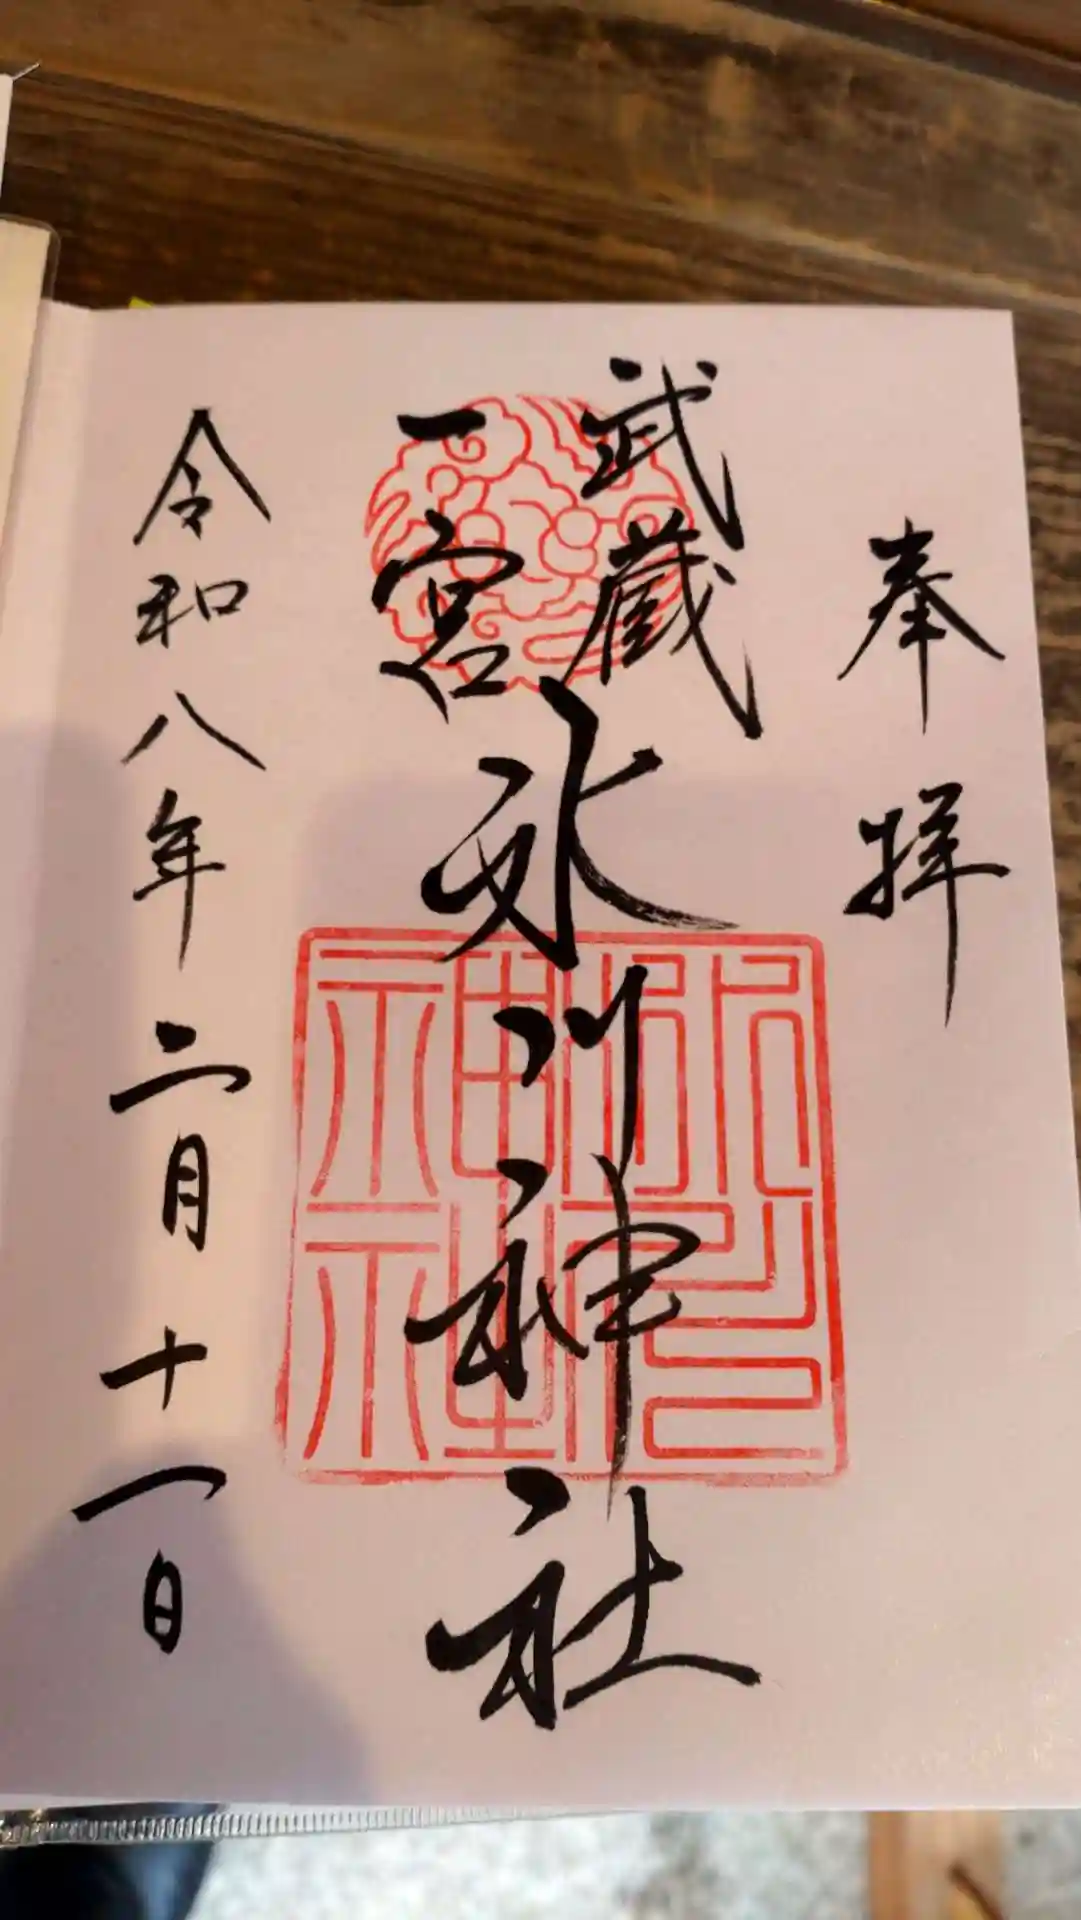 奉拝
武蔵
一宮
氷川神社
氷川神社
令和八年二月十一日